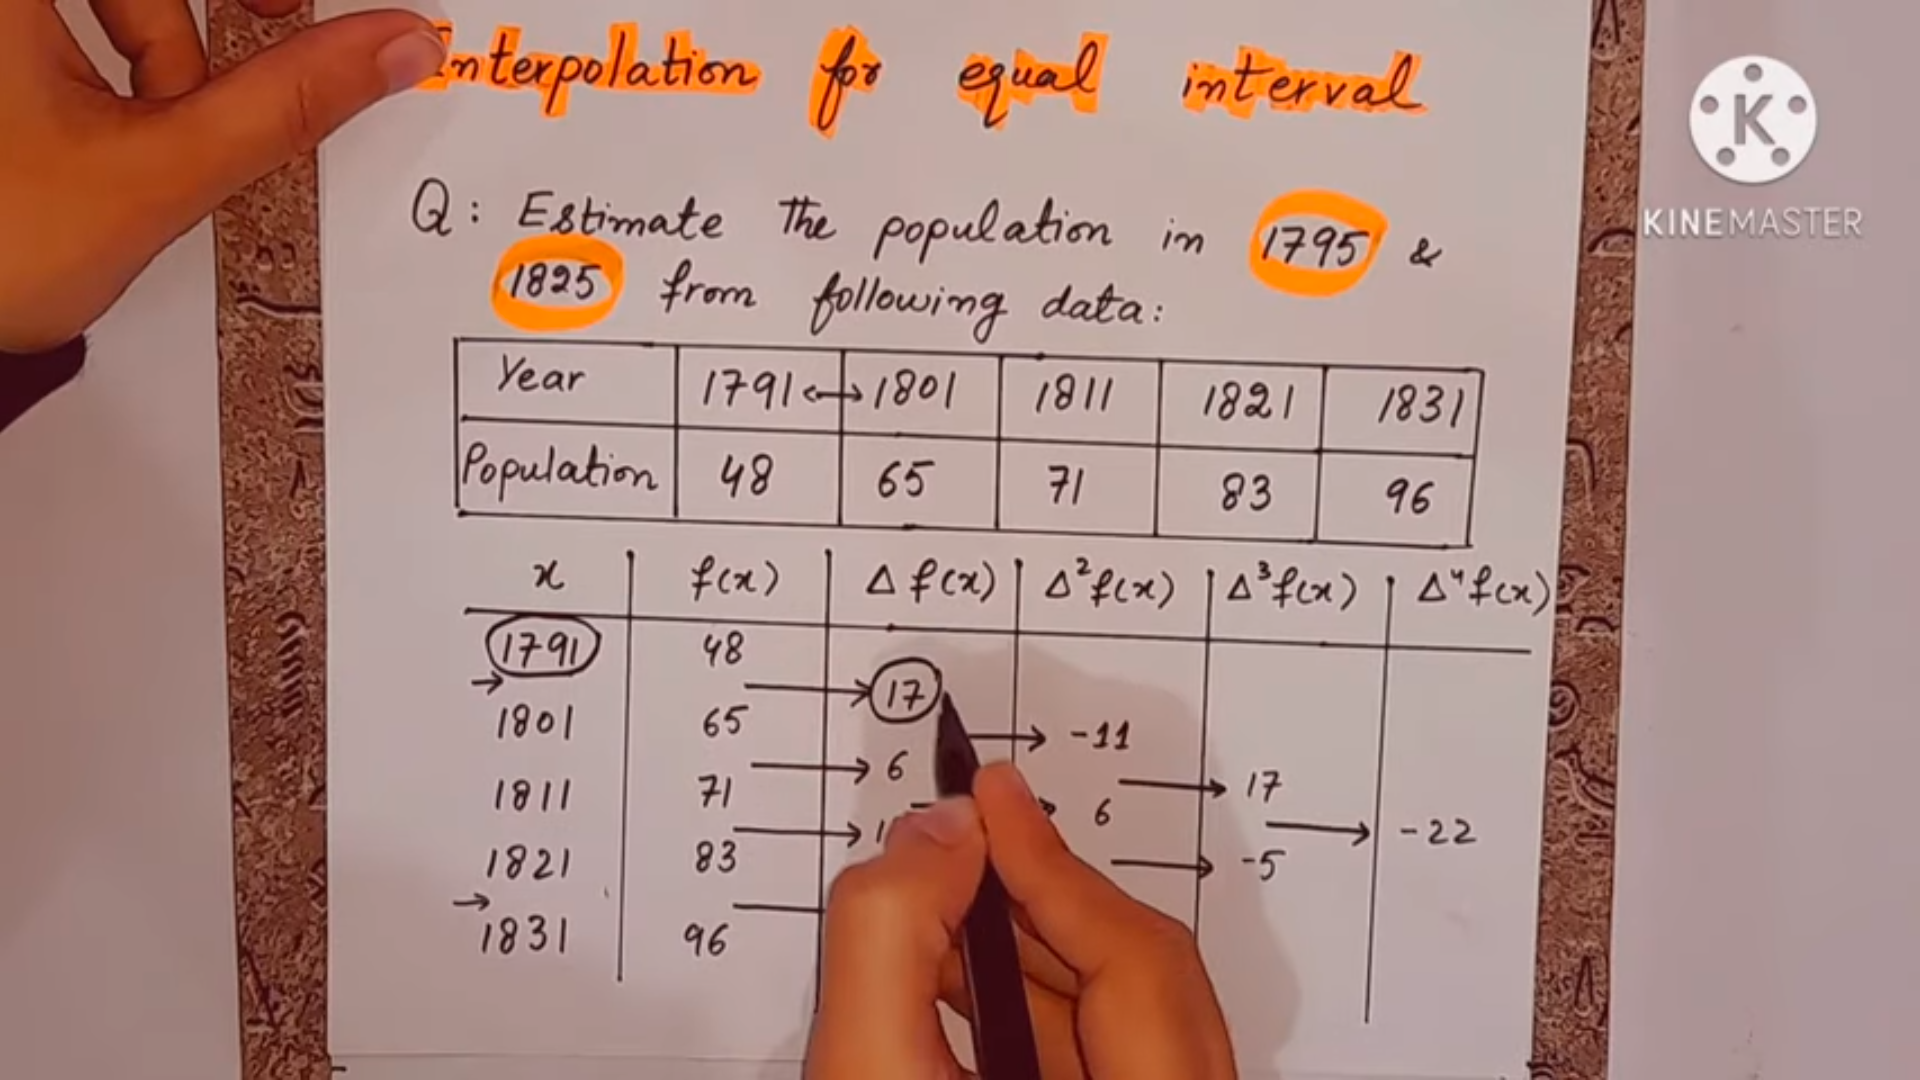 Interpolation for equal interval
Q: Estimate the population in 1795 &
1825 from following data:
Year 1791 ↔ 1801 1811 1821 1831
Population 48 65 71 83 96
x f(x) Δ f(x) Δ²f(x) Δ³f(x) Δ⁴f(x)
1791 48
→ → 17
1801 65 → -11
→ 6 → 17
1811 71 6 → -22
→ → -5
1821 83
→
1831 96
K
KINEMASTER